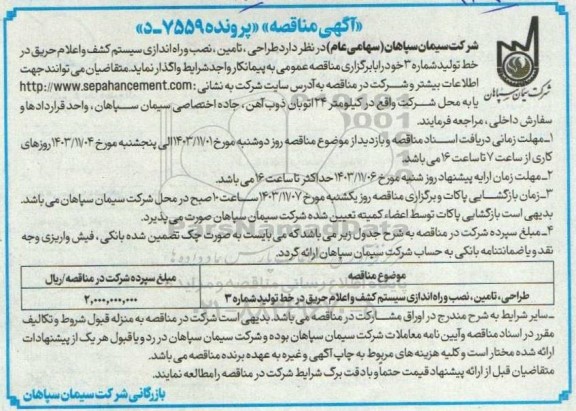 «آگهی مناقصه» «پرونده ۷۵۵۹-د»
شرکت سیمان سپاهان (سهامی عام) در نظر دارد طراحی، تامین، نصب و راه اندازی سیستم کشف و اعلام حریق در
خط تولید شماره ۳ خود را با برگزاری مناقصه عمومی به پیمانکار واجد شرایط واگذار نماید. متقاضیان می توانند جهت
اطلاعات بیشتر و شرکت در مناقصه به آدرس سایت شرکت به نشانی: http://www.sepahancement.com
یا به محل شرکت واقع در کیلومتر ۲۴ اتوبان ذوب آهن، جاده اختصاصی سیمان سپاهان، واحد قراردادها و
سفارش داخلی، مراجعه فرمایند.
شرکت سیمان سپاهان
۱-مهلت زمانی دریافت اسناد مناقصه و بازدید از موضوع مناقصه روز دوشنبه مورخ ۱۴۰۳/۱۱/۰۱ الی پنجشنبه مورخ ۱۴۰۳/۱۱/۰۴ روزهای
کاری از ساعت ۷ تا ساعت ۱۶ می باشد.
۲-مهلت زمان ارایه پیشنهاد روز شنبه مورخ ۱۴۰۳/۱۱/۰۶ حداکثر تا ساعت ۱۶ می باشد.
۳-زمان بازگشایی پاکات و برگزاری مناقصه روز یکشنبه مورخ ۱۴۰۳/۱۱/۰۷ ساعت ۱۰ صبح در محل شرکت سیمان سپاهان می باشد.
بدیهی است بازگشایی پاکات توسط اعضاء کمیته تعیین شده شرکت سیمان سپاهان صورت می پذیرد.
۴-مبلغ سپرده شرکت در مناقصه به شرح جدول زیر می باشد که می بایست به صورت چک تضمین شده بانکی، فیش واریزی وجه
نقد و یا ضمانتنامه بانکی به حساب شرکت سیمان سپاهان ارائه گردد.
موضوع مناقصه	مبلغ سپرده شرکت در مناقصه/ریال
طراحی، تامین، نصب و راه اندازی سیستم کشف و اعلام حریق در خط تولید شماره ۳	۲,۰۰۰,۰۰۰,۰۰۰
-سایر شرایط به شرح مندرج در اوراق مشارکت در مناقصه می باشد. بدیهی است شرکت در مناقصه به منزله قبول شروط و تکالیف
مقرر در اسناد مناقصه و آیین نامه معاملات شرکت سیمان سپاهان بوده و شرکت سیمان سپاهان در رد و یا قبول هر یک از پیشنهادات
ارائه شده مختار است و کلیه هزینه های مربوط به چاپ آگهی و غیره به عهده برنده مناقصه می باشد.
متقاضیان قبل از ارائه پیشنهاد قیمت حتما و با دقت برگ شرایط شرکت در مناقصه را مطالعه نمایند.
بازرگانی شرکت سیمان سپاهان